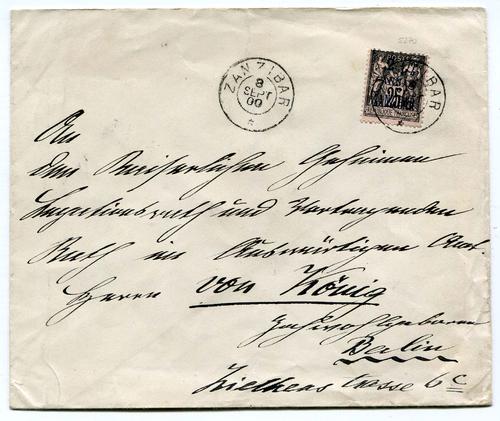 5270
ZANZIBAR
8
SEPT
00
ZANZIBAR
25
REPUBLIQUE FRANÇAISE
An
den Kaiserlichen Geheimen
Legationsrath und Vortragenden
Rath im Auswärtigen Amt.
Herrn von König
Hochwohlgeboren
Berlin
strasse 6c